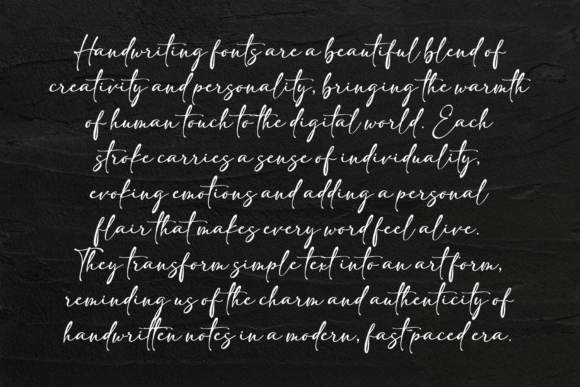 Handwriting fonts are a beautiful blend of
creativity and personality, bringing the warmth
of human touch to the digital world. Each
stroke carries a sense of individuality,
evoking emotions and adding a personal
flair that makes every word feel alive.
They transform simple text into an art form,
reminding us of the charm and authenticity of
handwritten notes in a modern, fast-paced era.